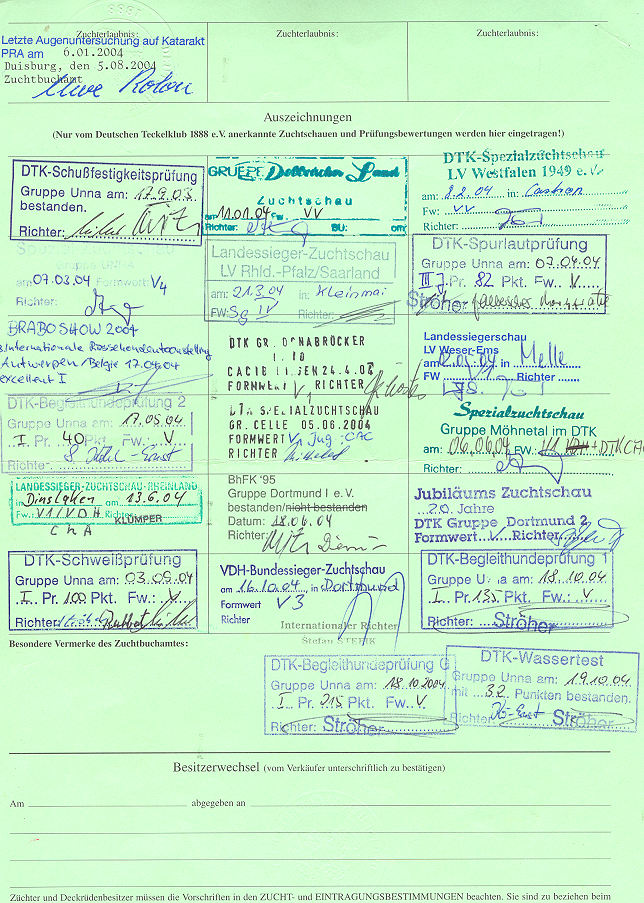 Zuchterlaubnis:
Zuchterlaubnis:
Zuchterlaubnis:
Letzte Augenuntersuchung auf Katarakt
PRA am 6.01.2004
Duisburg, den 5.08.2004
Zuchtbuchamt
Auszeichnungen
(Nur vom Deutschen Teckelklub 1888 e.V. anerkannte Zuchtschauen und Prüfungsbewertungen werden hier eingetragen!)
DTK-Schußfestigkeitsprüfung
Gruppe Unna am: 17.9.03
bestanden.
Richter:
GRUPPE
Zuchtschau
am 11.01.04 Fw VV
Richter: BU: om:
DTK-Spezialzuchtschau
LV Westfalen 1949 e.V.
am: 8.2.04 in:
Fw: VV
Richter:
am 07.03.04 Formwert: V4
Richter:
Landessieger-Zuchtschau
LV Rhld.-Pfalz/Saarland
am: 21.3.04 in:
FW: Sg IV
DTK-Spurlautprüfung
Gruppe Unna am: 07.04.04
III. Pr. 82 Pkt. Fw. V
Ströher
BRABO SHOW 2004
Internationale Rassehondentoonstelling
Antwerpen/Belgie 17.04.04
excellent I
DTK GR. OSNABRÜCKER
CACIB 24.4.04
FORMWERT V RICHTER
Landessiegerschau
LV Weser-Ems
am in Melle
FW Richter
DTK-Begleithundeprüfung 2
Gruppe Unna am: 17.05.04
I. Pr. 40 Pkt. Fw. V
Richter:
DTK SPEZIALZUCHTSCHAU
GR. CELLE 05.06.2004
FORMWERT V1 Jug. CAC
RICHTER
Spezialzuchtschau
Gruppe Möhnetal im DTK
am: 06.06.04 FW: VDH + DTK CA
Richter:
LANDESSIEGER-ZUCHTSCHAU-RHEINLAND
in Dinslaken am 13.6.04
Fw. V1/VDH Richter KLÜMPER
ChA
BhFK '95
Gruppe Dortmund I e.V.
bestanden/nicht bestanden
Datum: 18.06.04
Richter:
Jubiläums Zuchtschau
20. Jahre
DTK Gruppe Dortmund 2
Formwert V Richter
DTK-Schweißprüfung
Gruppe Unna am: 03.09.04
I. Pr. 100 Pkt. Fw.: V
Richter:
VDH-Bundessieger-Zuchtschau
am 16.10.04 in Dortmund
Formwert V3
Richter
Internationaler Richter
DTK-Begleithundeprüfung 1
Gruppe Unna am: 18.10.04
I. Pr. 135 Pkt. Fw.: V
Richter: Ströher
Besondere Vermerke des Zuchtbuchamtes:
DTK-Begleithundeprüfung G
Gruppe Unna am: 18.10.2004
I. Pr. 215 Pkt. Fw. V
Richter: Ströher
DTK-Wassertest
Gruppe Unna am: 19.10.04
mit 32 Punkten bestanden.
Richter: Ströher
Besitzerwechsel (vom Verkäufer unterschriftlich zu bestätigen)
Am abgegeben an
Züchter und Deckrüdenbesitzer müssen die Vorschriften in den ZUCHT- und EINTRAGUNGSBESTIMMUNGEN beachten. Sie sind zu beziehen beim